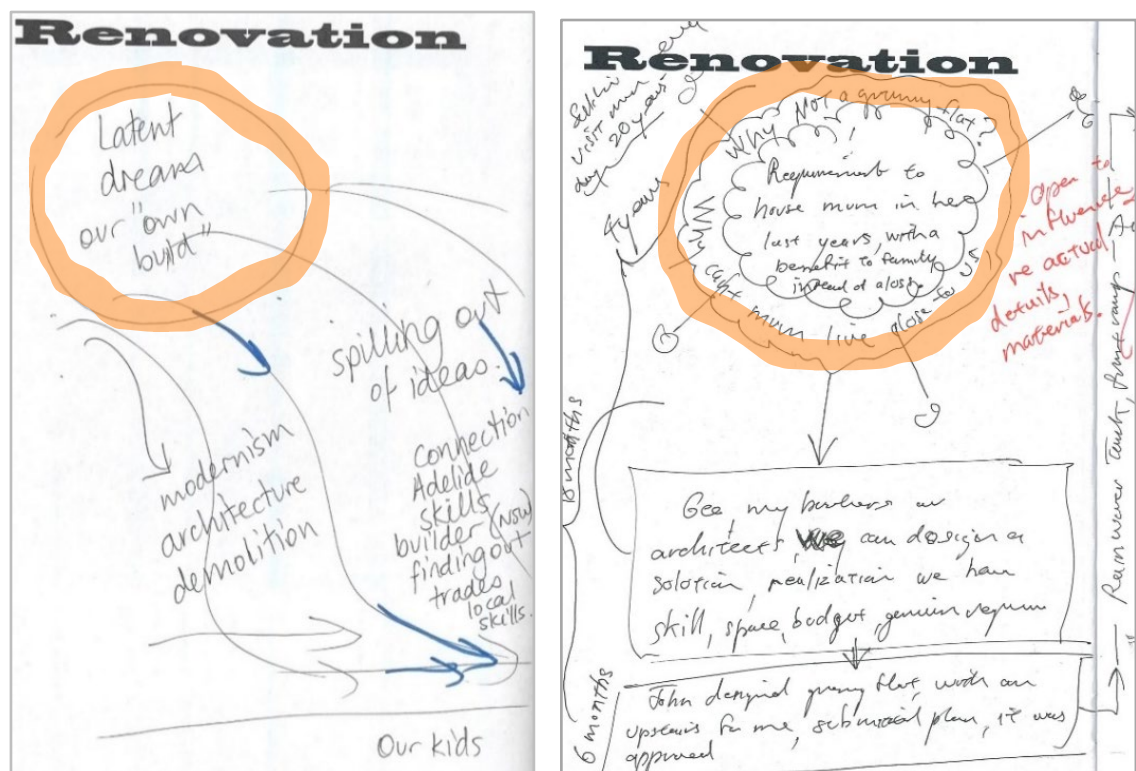 Renovation
Latent
dreams
our "own
build"
spilling out
of ideas.
modernism
architecture
demolition
Connection
Adelide
skills
builder (now)
finding out
trades
local
skills.
Our kids
Renovation
visit mum
20 years
Why Not a granny flat?
Why can't mum live close to us
Requirement to
house mum in her
last years, with a
benefit to family
instead of a loss.
4 years
open to
influence
re actual
details,
materials.
8 months
Gee my brothers are
architects, We can design a
solution, realization we have
skill, space, budget, genuine
6 months
John designed granny flat, with an
upstairs for me, submitted plan, it was
approved
Rainwater Tank,